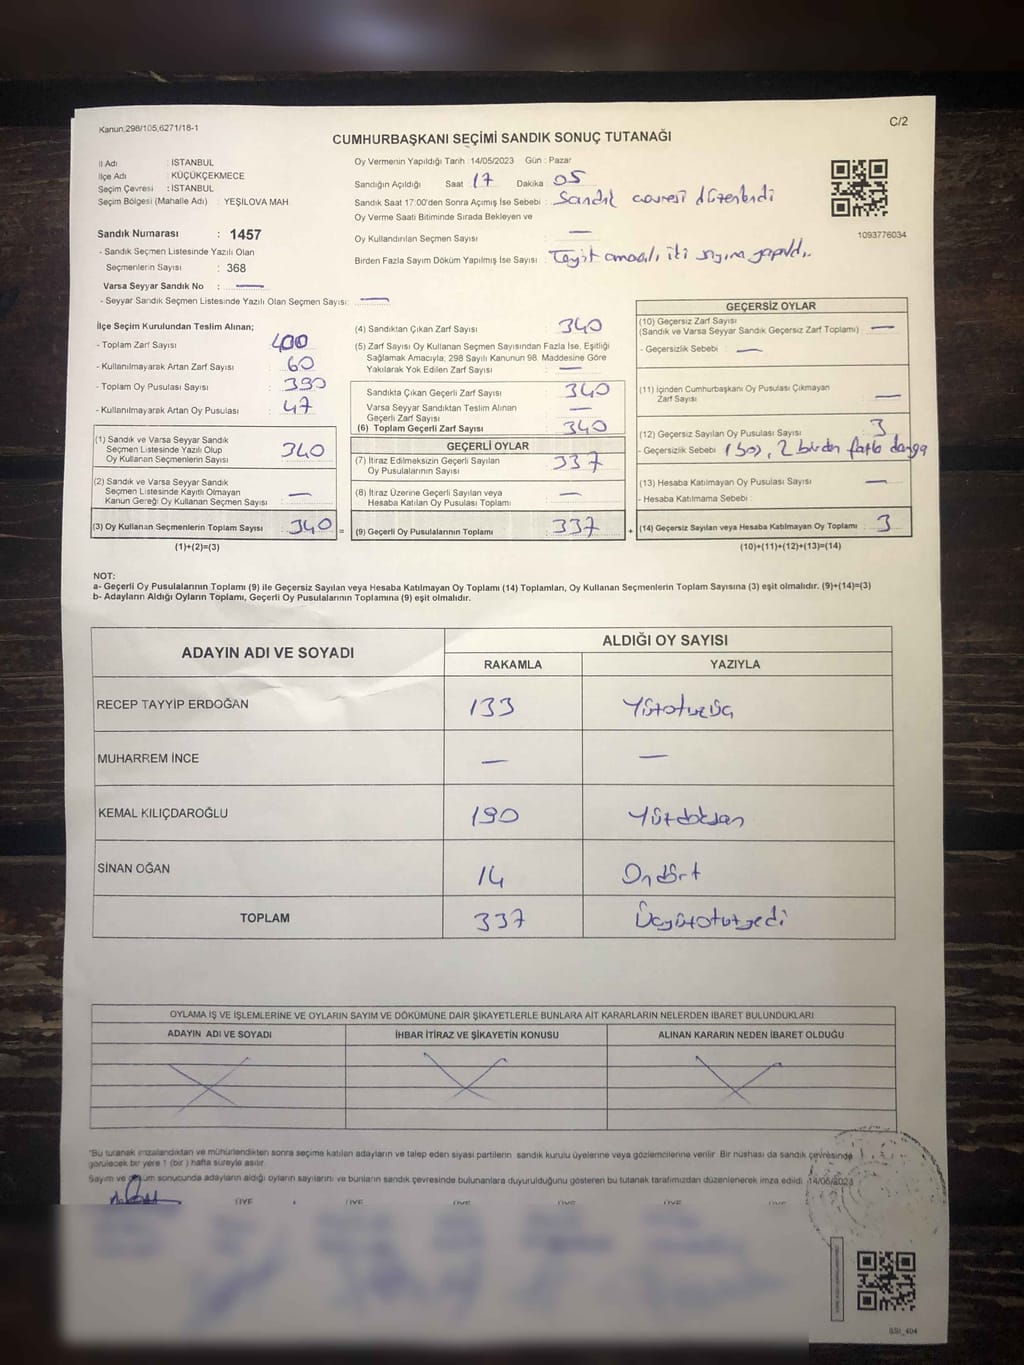 Kanun,298/105,6271/18-1
C/2
CUMHURBAŞKANI SEÇİMİ SANDIK SONUÇ TUTANAĞI
İl Adı : İSTANBUL
İlçe Adı : KÜÇÜKÇEKMECE
Seçim Çevresi : İSTANBUL
Seçim Bölgesi (Mahalle Adı) : YEŞİLOVA MAH.
Sandık Numarası : 1457
- Sandık Seçmen Listesinde Yazılı Olan
Seçmenlerin Sayısı : 368
Varsa Seyyar Sandık No : —
- Seyyar Sandık Seçmen Listesinde Yazılı Olan Seçmen Sayısı: —
Oy Vermenin Yapıldığı Tarih : 14/05/2023 Gün : Pazar
Sandığın Açıldığı Saat 17 Dakika 05
Sandık Saat 17:00'den Sonra Açımış İse Sebebi : Sandık çevresi düzenlendi
Oy Verme Saati Bitiminde Sırada Bekleyen ve
Oy Kullandırılan Seçmen Sayısı : —
Birden Fazla Sayım Döküm Yapılmış İse Sayısı : Teyit amaçlı iki sayım yapıldı.
1093776034
İlçe Seçim Kurulundan Teslim Alınan;
- Toplam Zarf Sayısı : 400
- Kullanılmayarak Artan Zarf Sayısı : 60
- Toplam Oy Pusulası Sayısı : 390
- Kullanılmayarak Artan Oy Pusulası : 47
(1) Sandık ve Varsa Seyyar Sandık
Seçmen Listesinde Yazılı Olup
Oy Kullanan Seçmenlerin Sayısı : 340
(2) Sandık ve Varsa Seyyar Sandık
Seçmen Listesinde Kayıtlı Olmayan
Kanun Gereği Oy Kullanan Seçmen Sayısı : —
(3) Oy Kullanan Seçmenlerin Toplam Sayısı : 340 =
(1)+(2)=(3)
(4) Sandıktan Çıkan Zarf Sayısı : 340
(5) Zarf Sayısı Oy Kullanan Seçmen Sayısından Fazla İse, Eşitliği
Sağlamak Amacıyla; 298 Sayılı Kanunun 98. Maddesine Göre
Yakılarak Yok Edilen Zarf Sayısı : —
Sandıkta Çıkan Geçerli Zarf Sayısı : 340
Varsa Seyyar Sandıktan Teslim Alınan
Geçerli Zarf Sayısı : —
(6) Toplam Geçerli Zarf Sayısı : 340
GEÇERLİ OYLAR
(7) İtiraz Edilmeksizin Geçerli Sayılan
Oy Pusulalarının Sayısı : 337
(8) İtiraz Üzerine Geçerli Sayılan veya
Hesaba Katılan Oy Pusulaları Toplamı : —
(9) Geçerli Oy Pusulalarının Toplamı : 337 +
GEÇERSİZ OYLAR
(10) Geçersiz Zarf Sayısı :
(Sandık ve Varsa Seyyar Sandık Geçersiz Zarf Toplamı) —
- Geçersizlik Sebebi : —
(11) İçinden Cumhurbaşkanı Oy Pusulası Çıkmayan
Zarf Sayısı : —
(12) Geçersiz Sayılan Oy Pusulası Sayısı : 3
- Geçersizlik Sebebi : 1 boş, 2 birden fazla damga
(13) Hesaba Katılmayan Oy Pusulası Sayısı : —
- Hesaba Katılmama Sebebi :
(14) Geçersiz Sayılan veya Hesaba Katılmayan Oy Toplamı : 3
(10)+(11)+(12)+(13)=(14)
NOT:
a- Geçerli Oy Pusulalarının Toplamı (9) ile Geçersiz Sayılan veya Hesaba Katılmayan Oy Toplamı (14) Toplamları, Oy Kullanan Seçmenlerin Toplam Sayısına (3) eşit olmalıdır. (9)+(14)=(3)
b- Adayların Aldığı Oyların Toplamı, Geçerli Oy Pusulalarının Toplamına (9) eşit olmalıdır.
ADAYIN ADI VE SOYADI
ALDIĞI OY SAYISI
RAKAMLA YAZIYLA
RECEP TAYYİP ERDOĞAN 133 Yüzotuzüç
MUHARREM İNCE — —
KEMAL KILIÇDAROĞLU 190 Yüzdoksan
SİNAN OĞAN 14 Ondört
TOPLAM 337 Üçyüzotuzyedi
OYLAMA İŞ VE İŞLEMLERİNE VE OYLARIN SAYIM VE DÖKÜMÜNE DAİR ŞİKAYETLERLE BUNLARA AİT KARARLARIN NELERDEN İBARET BULUNDUKLARI
ADAYIN ADI VE SOYADI İHBAR İTİRAZ VE ŞİKAYETİN KONUSU ALINAN KARARIN NEDEN İBARET OLDUĞU
*Bu tutanak imzalandıktan ve mühürlendikten sonra seçime katılan adayların ve talep eden siyasi partilerin sandık kurulu üyelerine veya gözlemcilerine verilir. Bir nüshası da sandık çevresinde
görülecek bir yere 1 (bir) hafta süreyle asılır.
Sayım ve döküm sonucunda adayların aldığı oyların sayılarını ve bunların sandık çevresinde bulunanlara duyurulduğunu gösteren bu tutanak tarafımızdan düzenlenerek imza edildi. 14/05/2023
ÜYE ÜYE ÜYE ÜYE ÜYE ÜYE
BSI_404